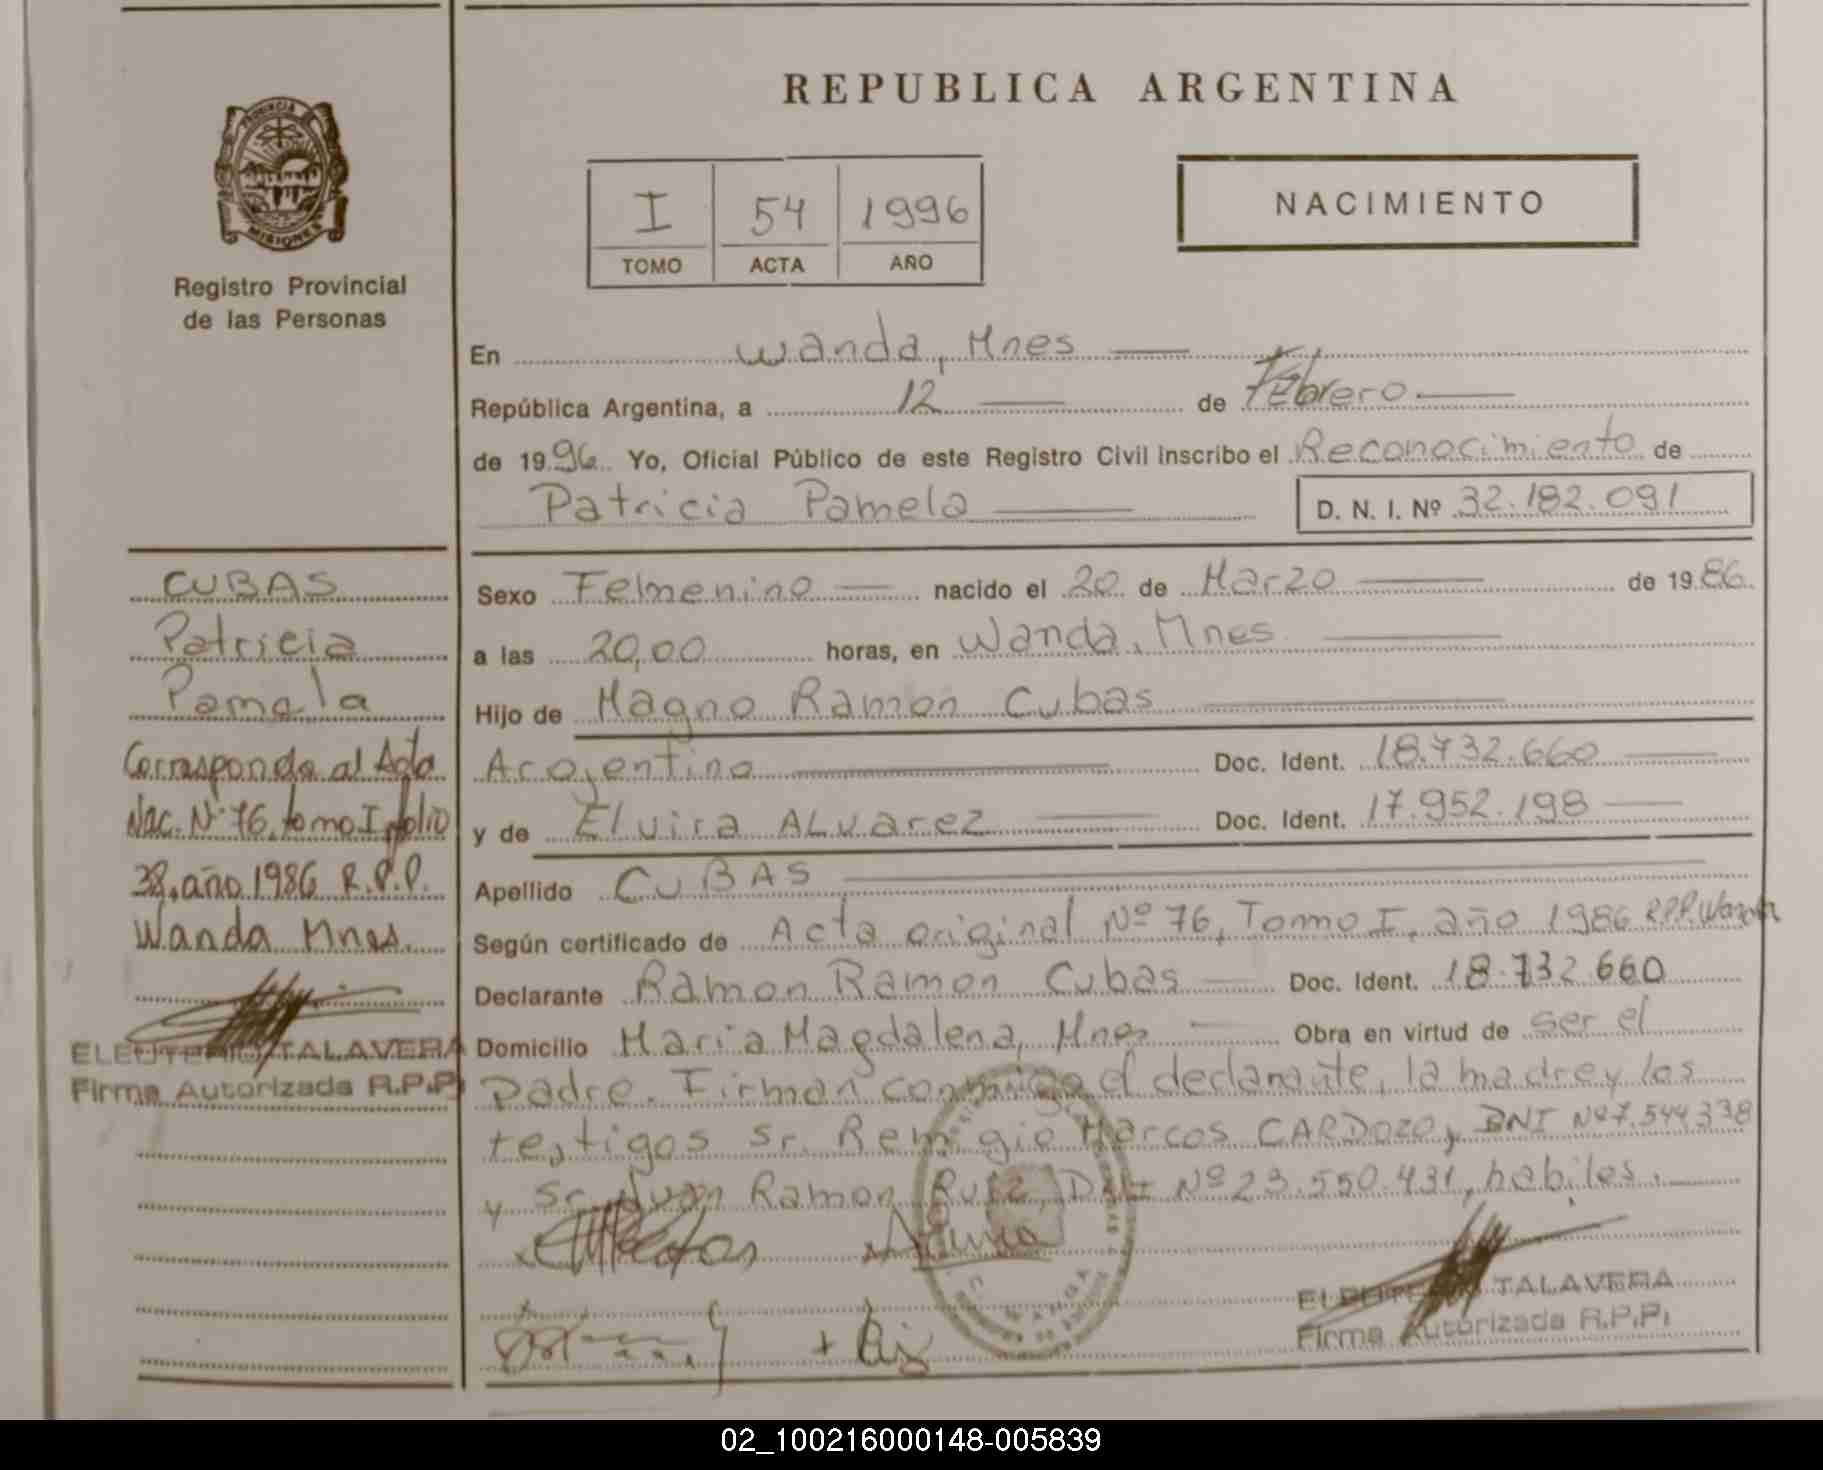 REPUBLICA ARGENTINA
PROVINCIA DE
MISIONES
Registro Provincial
de las Personas
I 54 1996
TOMO ACTA AÑO
NACIMIENTO
En Wanda, Mnes
República Argentina, a 12 de Febrero
de 1996 Yo, Oficial Público de este Registro Civil inscribo el Reconocimiento de
Patricia Pamela D. N. I. Nº 32.182.091
CUBAS
Patricia
Pamela
Corresponde al Acta
Nac. Nº 76, tomo I folio
38, año 1986 R.P.P.
Wanda Mnes.
ELEUTERIO TALAVERA
Firma Autorizada R.P.P.
Sexo Felmenino nacido el 20 de Marzo de 1986
a las 20,00 horas, en Wanda, Mnes
Hijo de Magno Ramon Cubas
Argentino Doc. Ident. 18.732.660
y de Elvira ALvarez Doc. Ident. 17.952.198
Apellido CUBAS
Según certificado de Acta original Nº 76, Tomo I, año 1986 R.P.P. Wanda
Declarante Ramon Ramon Cubas Doc. Ident. 18.732.660
Domicilio Maria Magdalena, Mnes Obra en virtud de ser el
padre. Firman conmigo el declarante, la madre y los
testigos Sr. Remigio Marcos CARDOZO, DNI Nº 7.544.338
y Sr. Juan Ramon Ruiz, DNI Nº 23.550.431, habiles.
ELEUTERIO TALAVERA
Firma Autorizada R.P.P.
02_100216000148-005839